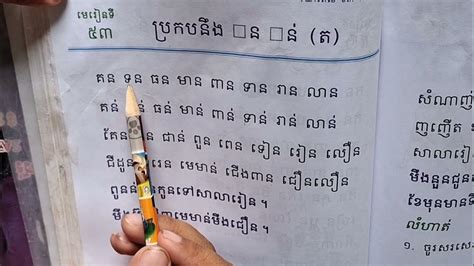 មេរៀនទី
៥៣
ប្រកបនឹង □ន □ន់ (ត)
គន ទន ធន មាន ពាន ទាន រាន លាន
គន់ ន់ ធន់ មាន់ ពាន់ ទាន់ រាន់ លាន់
តែន ន ជាន់ ពូន ពេន ទៀន រៀន លឿន
ជីដូន រេន មេមាន់ ជើងពាន ជឿនលឿន
ពូន កូនទៅសាលារៀន ។
មីង មាន់មីងជឿន ។
សំណាញ់
ញញើត
សាលារៀ
មីងនួនជូន
ខែមុនមាន
លំហាត់
១. ចូរសរសេ